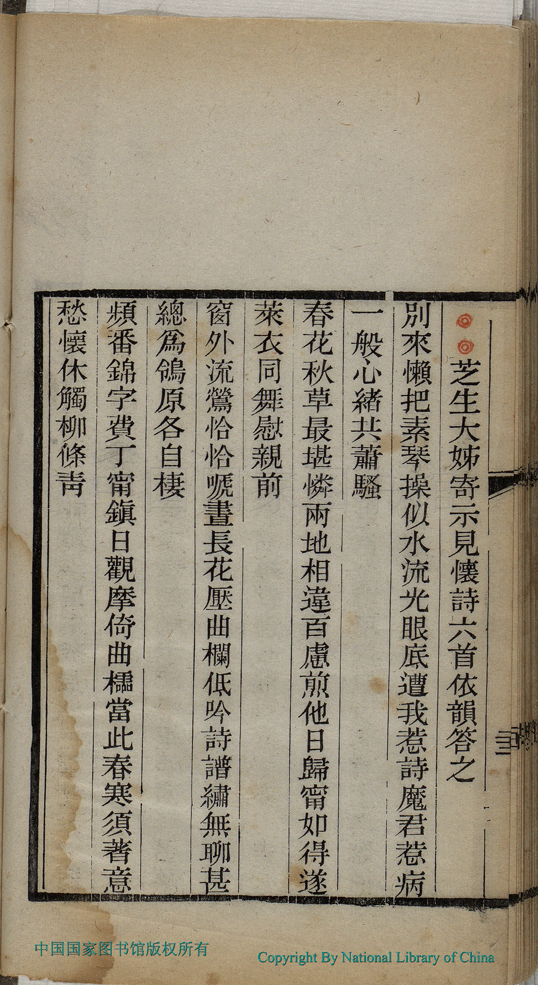 芝生大姊寄示見懷詩六首依韻答之
別來懶把素琴操似水流光眼底遭我惹詩魔君惹病
一般心緒共蕭騷
春花秋草最堪憐兩地相違百慮煎他日歸甯如得遂
萊衣同舞慰親前
窗外流鶯恰恰嗁晝長花壓曲欄低吟詩譜繡無聊甚
總爲鴒原各自棲
頻番錦字費丁甯鎭日觀摩倚曲櫺當此春寒須著意
愁懷休觸柳條靑
中国国家图书馆版权所有
Copyright By National Library of China